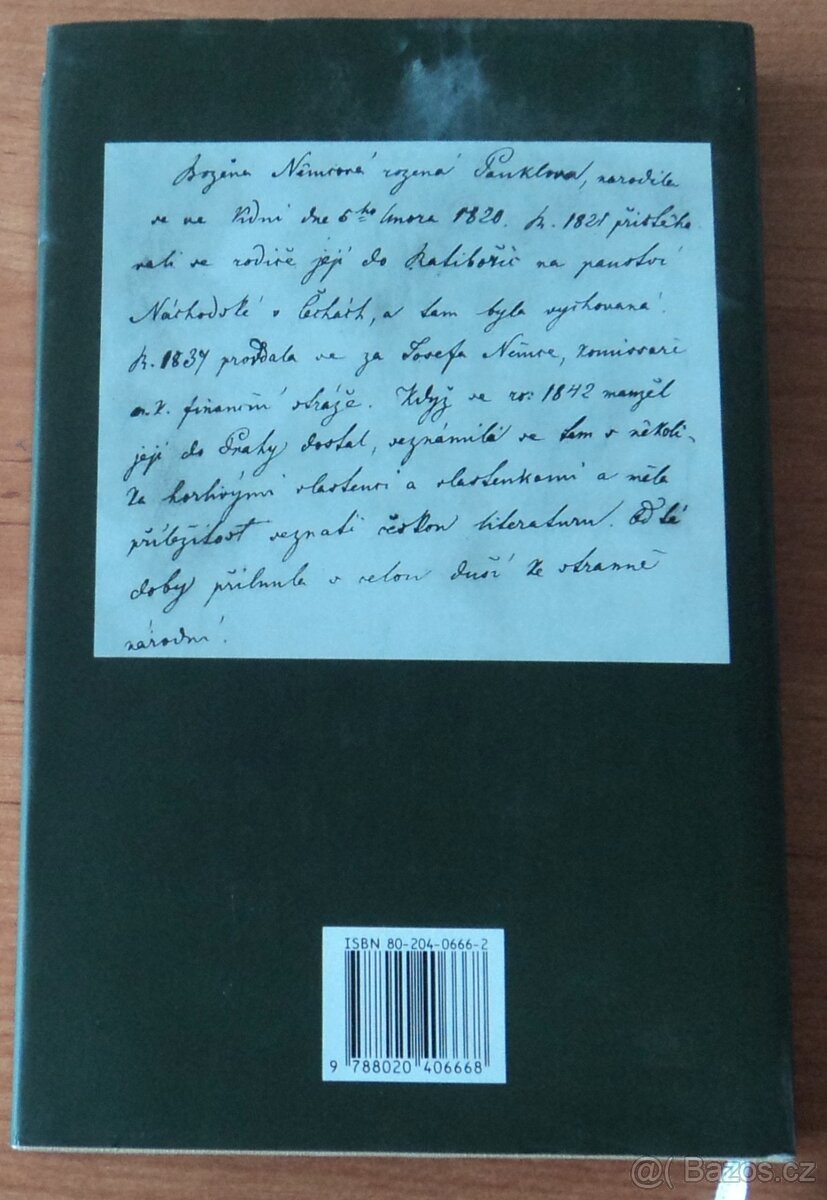 Božena Němcová rozená Panklova, narodila
se ve Vídni dne 5ho Února 1820. R. 1821 přistěho-
vali se rodiče její do Ratibořic na panství
Náchodské v Čechách, a tam byla vychovaná.
R. 1837 provdala se za Josefa Němce, komissaře
c. k. finanční stráže. Když se ro: 1842 manžel
její do Prahy dostal, seznámila se tam s několi-
ka horlivými vlastenci a vlastenkami a měla
příležitost seznati českou literaturu. Od té
doby přilnula s celou duší ke straně
národní.
ISBN 80-204-0666-2
9 788020 406668
@( Bazos.cz